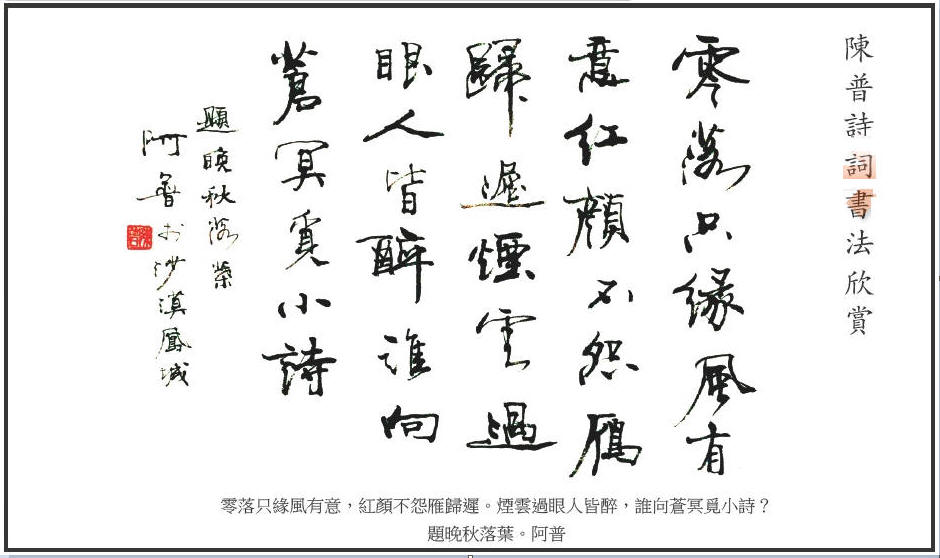 陳普詩詞書法欣賞
零落只緣風有
意紅顏不怨雁
歸遲煙雲過
眼人皆醉誰向
蒼冥覓小詩
題晚秋落葉
阿普於沙漠鳳城
零落只緣風有意，紅顏不怨雁歸遲。煙雲過眼人皆醉，誰向蒼冥覓小詩？
題晚秋落葉。阿普